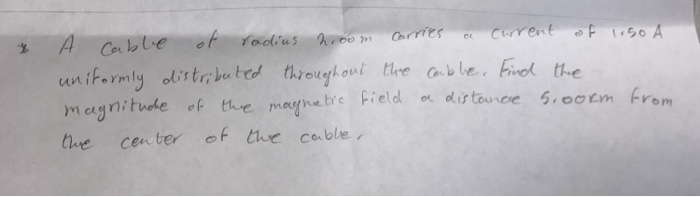 * A Cable of radius 2.00 m Carries a Current of 1.50 A
uniformly distributed throughout the cable. Find the
magnitude of the magnetic field a distance 5.00 cm from
the center of the cable.